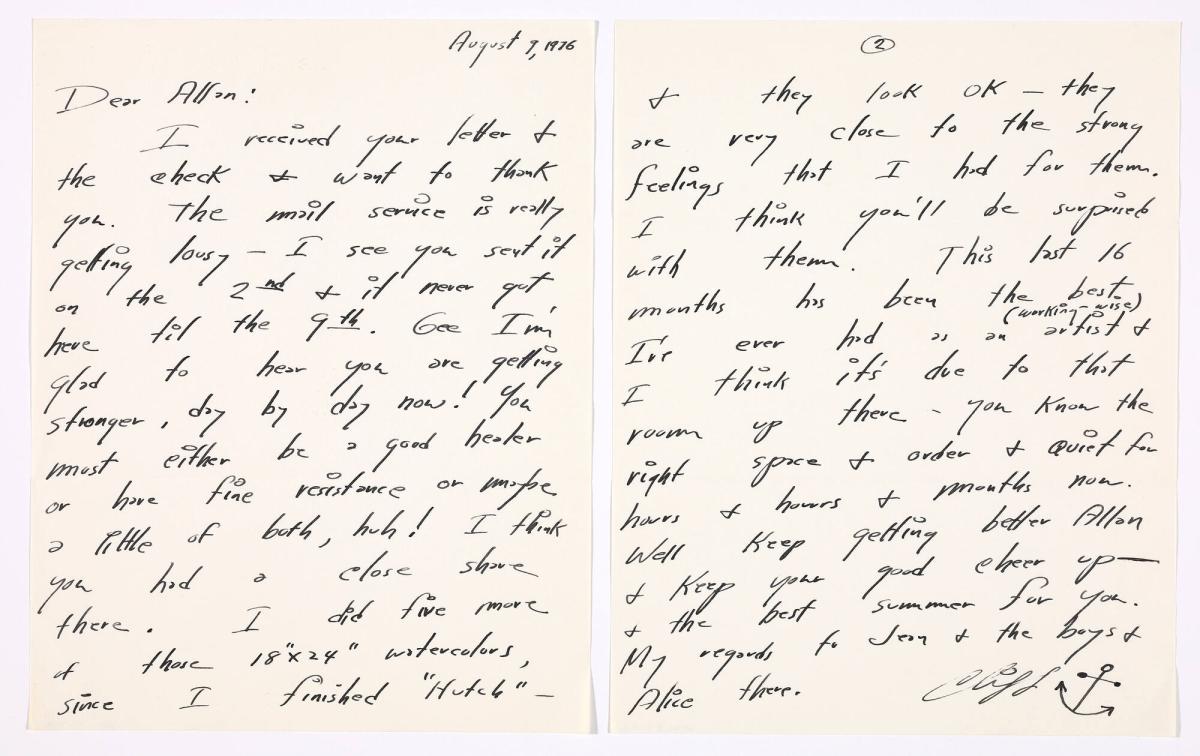 August 9, 1976
Dear Allan:
I received your letter &
the check & want to thank
you. The mail service is really
getting lousy — I see you sent it
on the 2nd & it never got
here til the 9th. Gee I'm
glad to hear you are getting
stronger, day by day now! You
must either be a good healer
or have fine resistance or maybe
a little of both, huh! I think
you had a close shave
there. I did five more
of those 18"x24" watercolors,
since I finished "Hutch" —
2
& they look OK — they
are very close to the strong
feelings that I had for them.
I think you'll be surprised
with them. This last 16
months has been the best
(working-wise)
I've ever had as an artist &
I think it's due to that
room up there - you know the
right space & order & quiet for
hours & hours & months now.
Well keep getting better Allan
& keep your good cheer up—
& the best summer for you.
My regards to Jean & the boys &
Alice there.
Cliff